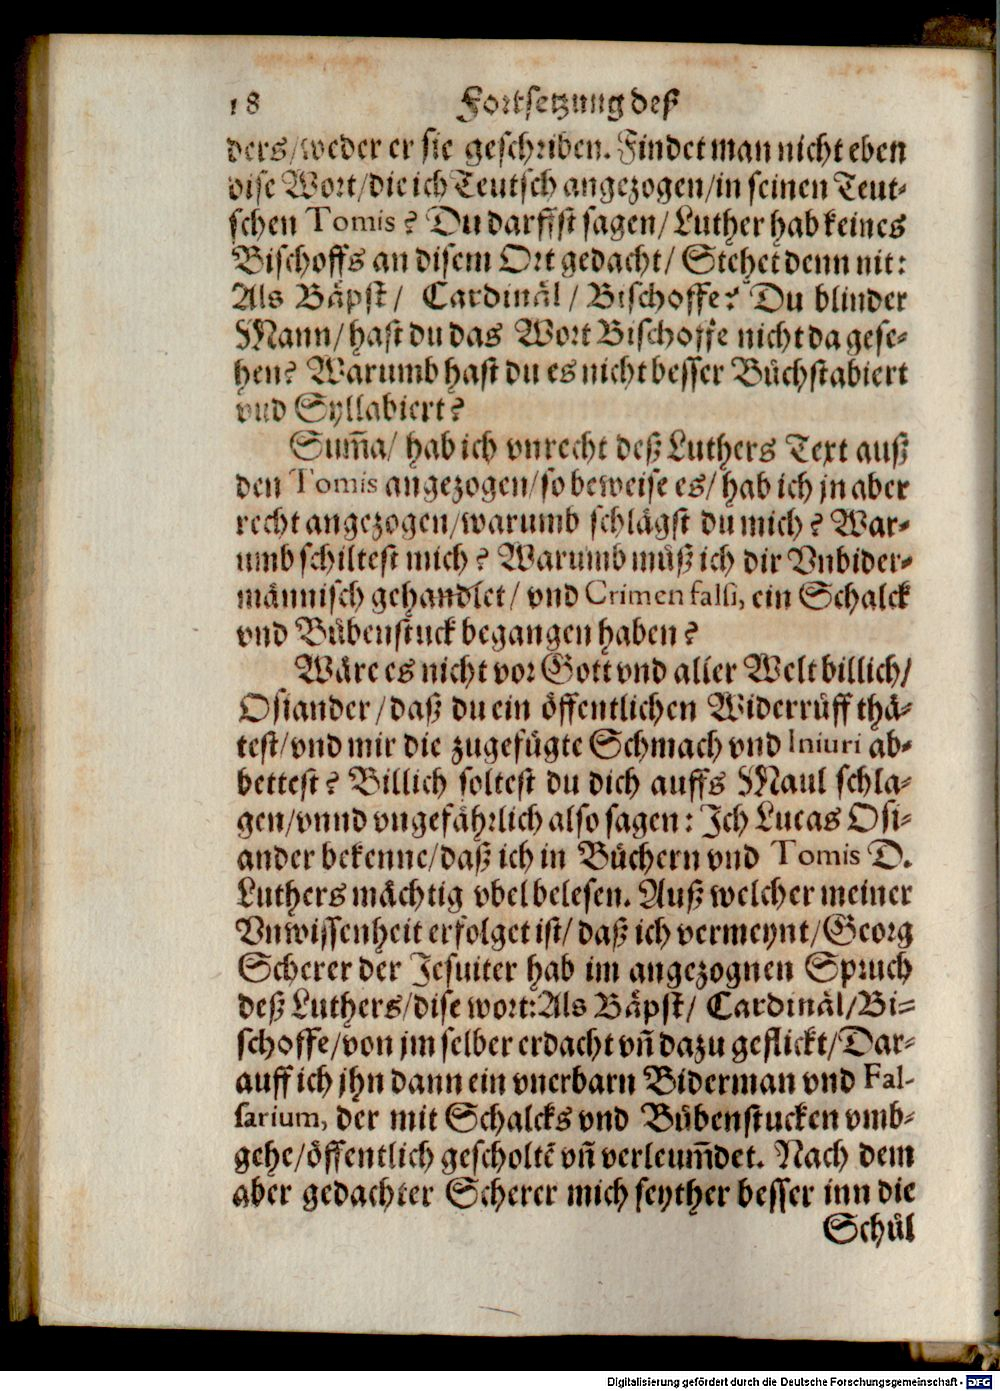 18 Fortsetzung deß
ders/weder er sie geschriben. Findet man nicht eben
dise Wort/die ich Teutsch angezogen/in seinen Teut-
schen Tomis? Du darffst sagen/ Luther hab keines
Bischoffs an disem Ort gedacht/ Stehet denn nit:
Als Bäpst/ Cardinäl/ Bischoffe? Du blinder
Mann/ hast du das Wort Bischoffe nicht da gese-
hen? Warumb hast du es nicht besser Bůchstabiert
vnd Syllabiert?
Sum̃a/ hab ich vnrecht deß Luthers Text auß
den Tomis angezogen/so beweise es/ hab ich jn aber
recht angezogen/warumb schlägst du mich? War-
umb schiltest mich? Warumb můß ich dir Vnbider-
männisch gehandlet/ vnd Crimen falsi, ein Schalck
vnd Bůbenstuck begangen haben?
Wäre es nicht vor Gott vnd aller Welt billich/
Osiander/daß du ein öffentlichen Widerrůff thä-
test/vnd mir die zugefůgte Schmach vnd Iniuri ab-
bettest? Billich soltest du dich auffs Maul schla-
gen/vnnd vngefährlich also sagen: Ich Lucas Osi-
ander bekenne/daß ich in Bůchern vnd Tomis D.
Luthers mächtig vbel belesen. Auß welcher meiner
Vnwissenheit erfolget ist/ daß ich vermeynt/Georg
Scherer der Jesuiter hab im angezognen Spruch
deß Luthers/dise wort:Als Bäpst/ Cardinäl/Bi-
schoffe/von jm selber erdacht vñ dazu geflickt/Dar-
auff ich jhn dann ein vnerbarn Biderman vnd Fal-
sarium, der mit Schalcks vnd Bůbenstucken vmb-
gehe/öffentlich gescholtẽ vñ verleum̃det. Nach dem
aber gedachter Scherer mich seyther besser inn die
Schůl
Digitalisierung gefördert durch die Deutsche Forschungsgemeinschaft - DFG